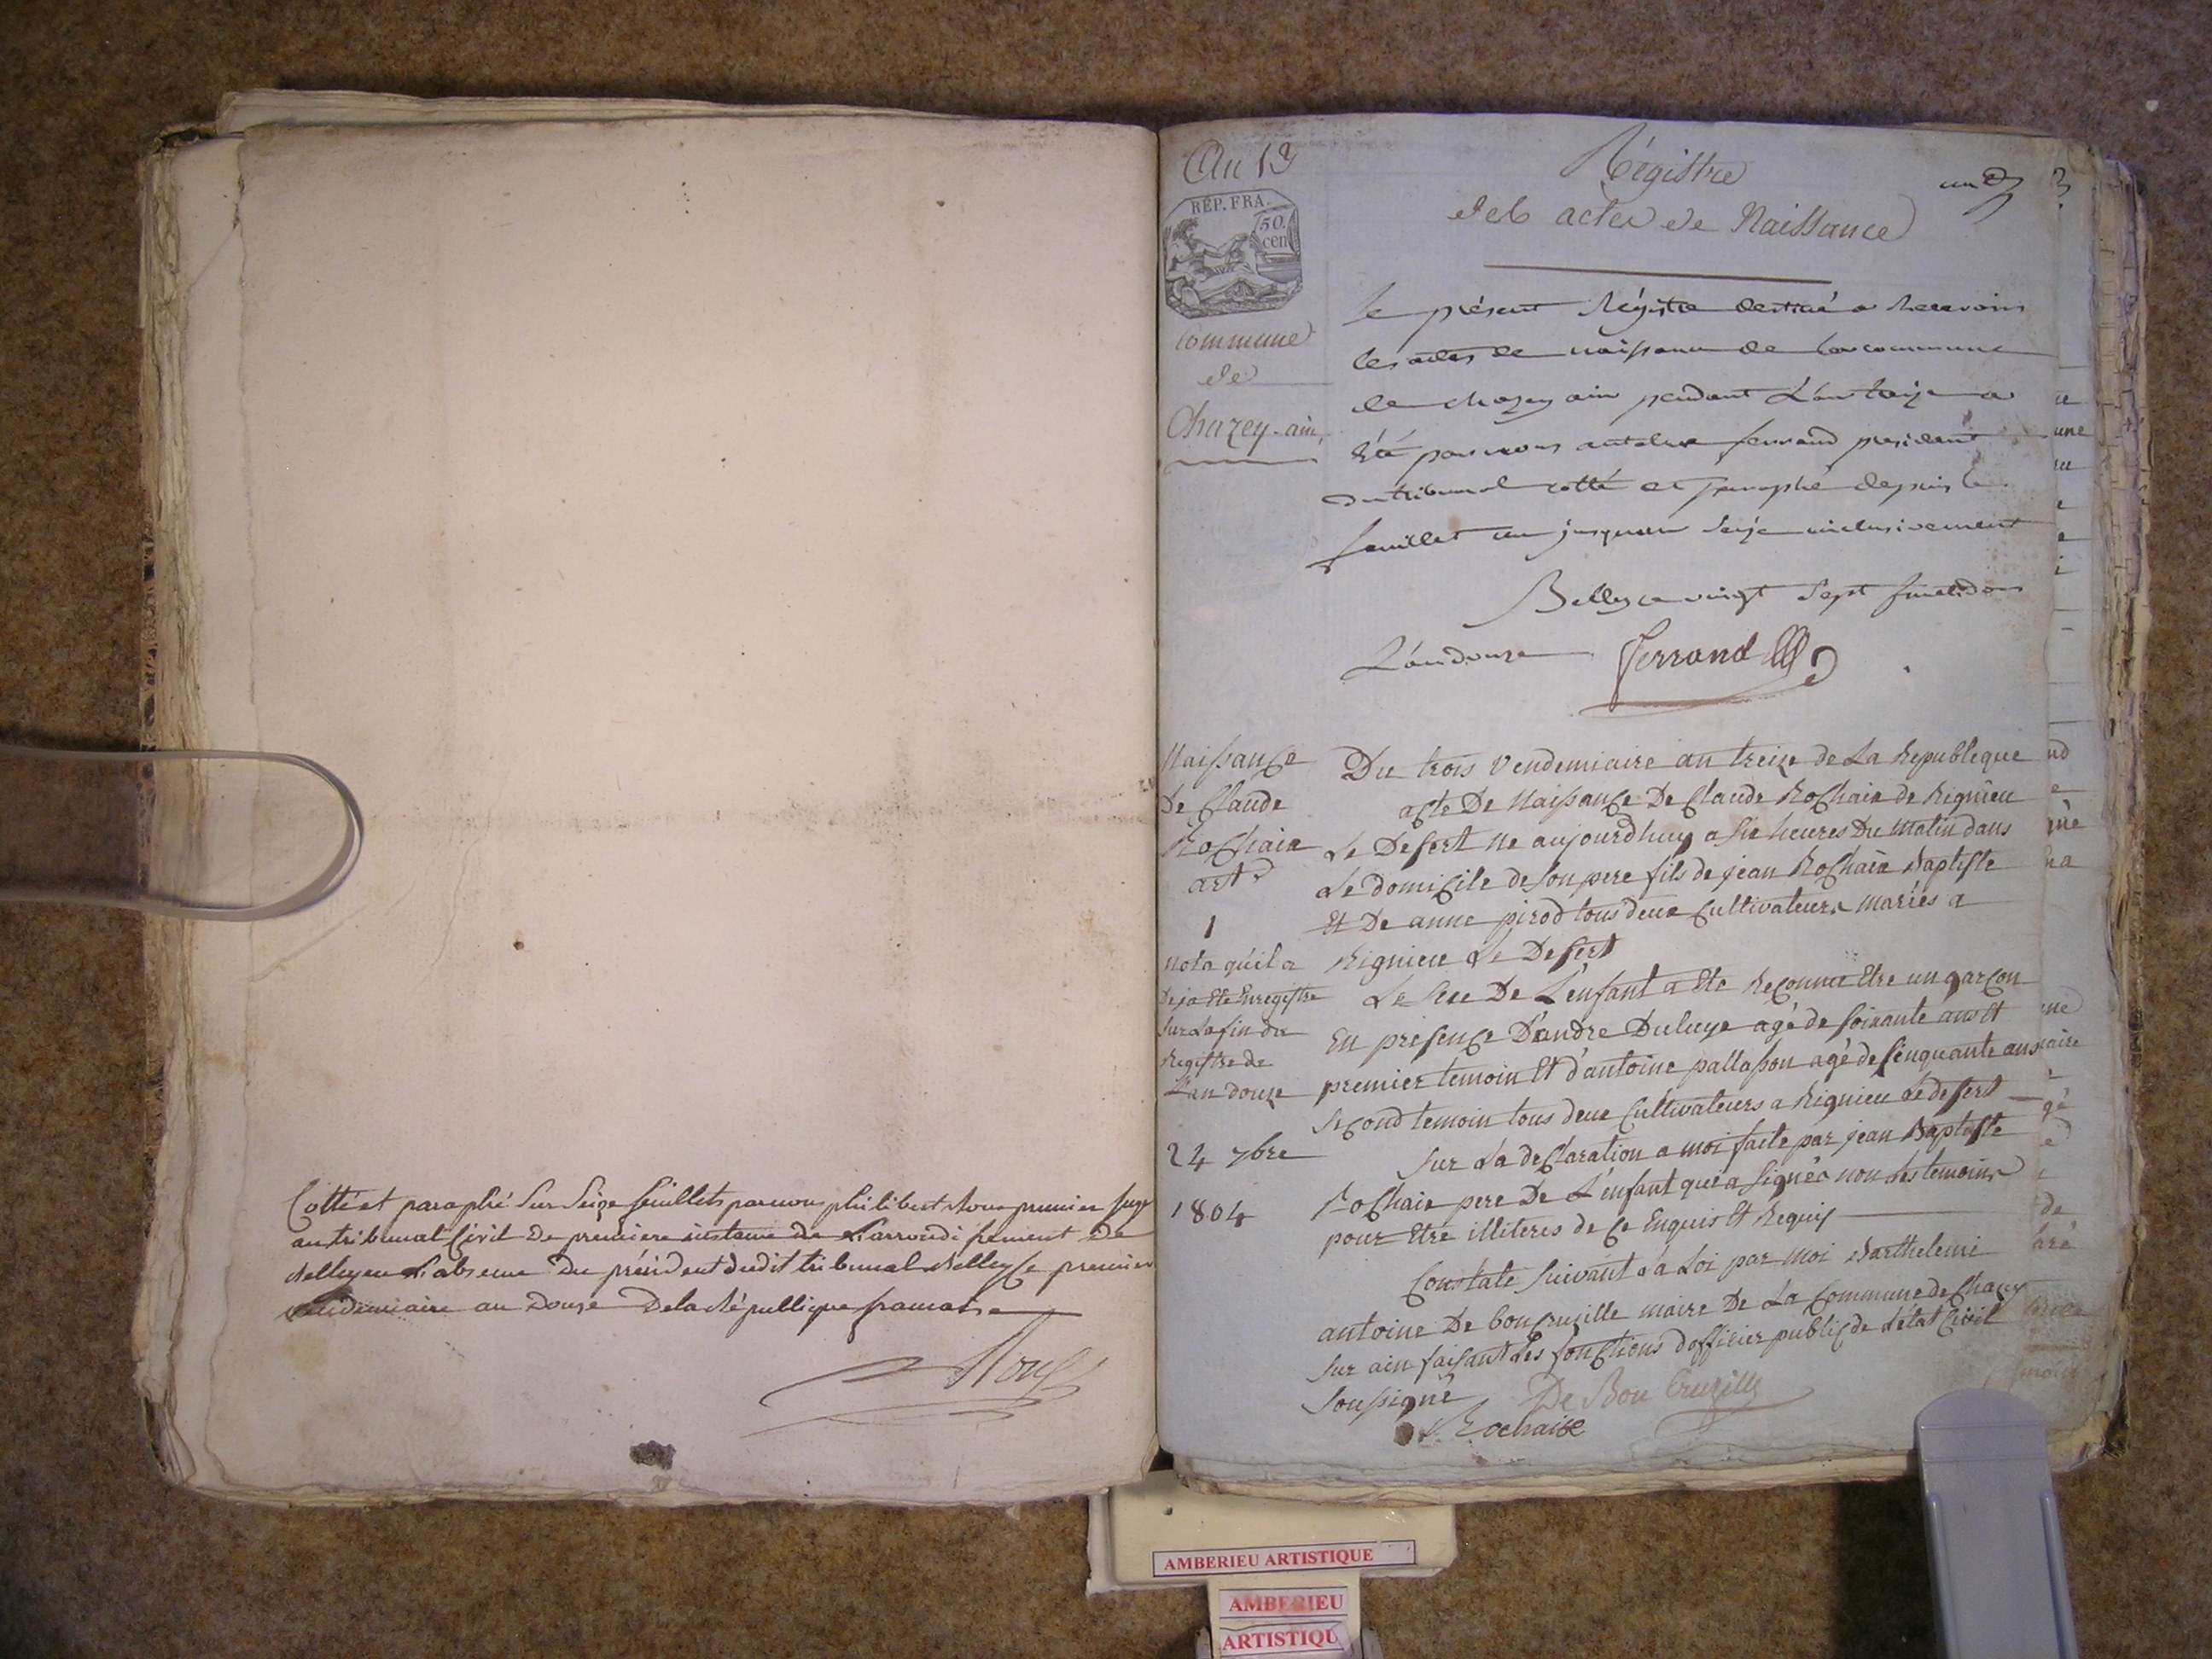 Cotté et paraphé Sur Seize feuillets par nous philibert Roux premier juge
au tribunal Civil de premiere instance de L'arrondissement de
Belley en L'absence Du président dudit tribunal Belley Ce premier
vendemiaire an Douze De la République francaise
Roux
An 13
REP. FRA.
50.
cen
Commune
de
Chazey-ain,
Régistre
des actes de Naissance
un
3
le présent Régistre destiné a Recevoir
les actes de naissance de la commune
de chazey ain pendant L'an treize a
Eté par nous antelme ferrand president
du tribunal cotté et paraphé depuis le
feuillet un jusquau Seize inclusivement
Belley ce vingt Sept fructidor
L'an douze Ferrand
Naissance
De Claude
Rochaix
art.
1
Nota qu'il a
Deja Ete Enregistre
Sur La fin du
Registre de
L'an douze
24 7bre
1804
Du trois Vendemiaire an treize de La Republeque
acte De Naissance De Claude Rochaix de Rignieu
Le Desert Ne aujourdhuy a Six heures Du Matin dans
Le domicile de Son pere fils de jean Rochaix Baptiste
Et De anne pirod tous deux Cultivateurs mariés a
Rignieu Le Desert
Le Sexe De L'enfant a Ete Reconnu Etre un garcon
En presence D'andre Duluye agé de Soixante ans Et
premier temoin Et d'antoine pallasson agé de Sinquante ans
Second temoin tous deux Cultivateurs a Rignieu Le desert
Sur La declaration a moi faite par jean Baptiste
Rochaix pere De L'enfant qui a Signé a non Les temoins
pour Etre illiteres de Ce Enquis Et Requis
Constate Suivant La Loi par Moi Barthelemi
antoine De boncruzille maire De La Commune de Chazey
Sur ain faisant Les fonctions d'officier public de L'état Civil
Soussigné De Bon Cruzille
Rochaise
AMBERIEU ARTISTIQUE
AMBERIEU
ARTISTIQU